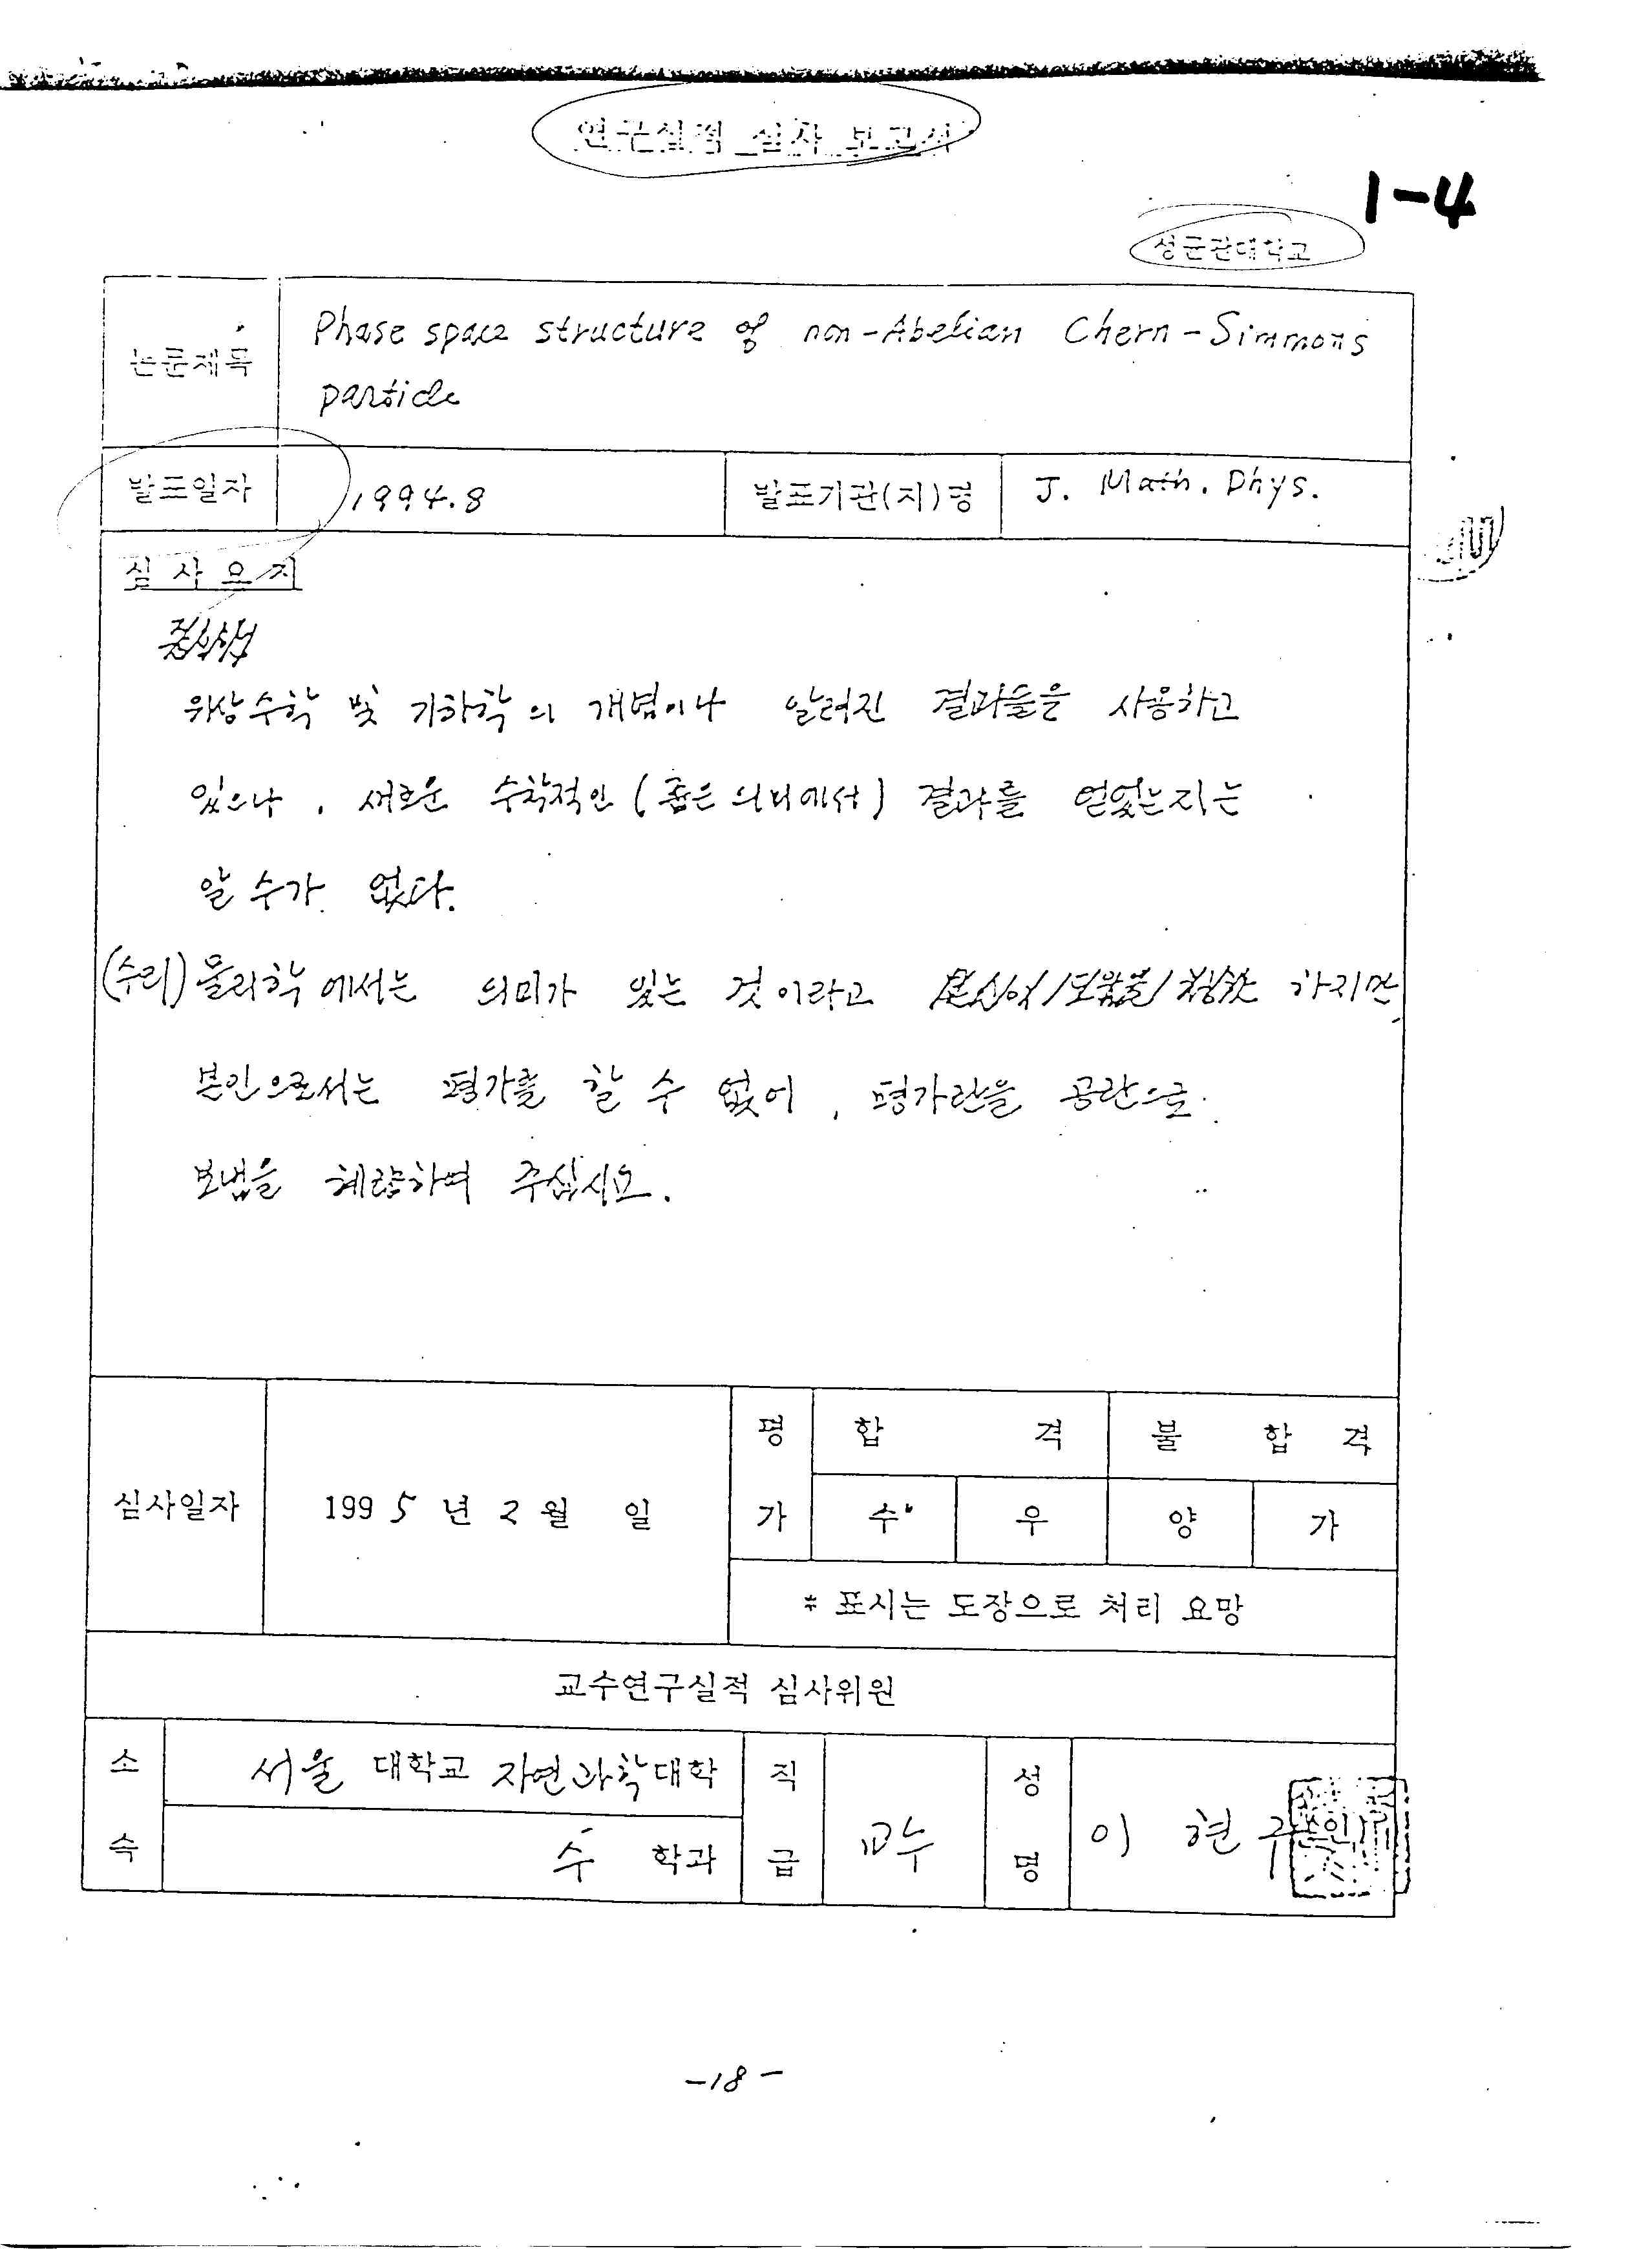 연구실적 심사 보고서
1-4
성균관대학교
논문제목
Phase space structure of non-Abelian Chern-Simmons
particle
발표일자 1994.8 발표기관(지)명 J. Math. Phys.
심 사 요 지
위상수학 및 기하학의 개념이나 알려진 결과들을 사용하고
있으나, 새로운 수학적인 (좁은 의미에서) 결과를 얻었는지는
알 수가 없다.
(수리) 물리학에서는 의미가 있는 것이라고 하지만
본인으로서는 평가를 할 수 없어, 평가란을 공란으로
보냄을 혜량하여 주십시요.
평 합 격 불 합 격
심사일자 1995년 2월 일 가 수 우 양 가
* 표시는 도장으로 처리 요망
교수연구실적 심사위원
소 서울 대학교 자연과학대학 직 성
교수 이 현 구
속 수 학과 급 명
-18-